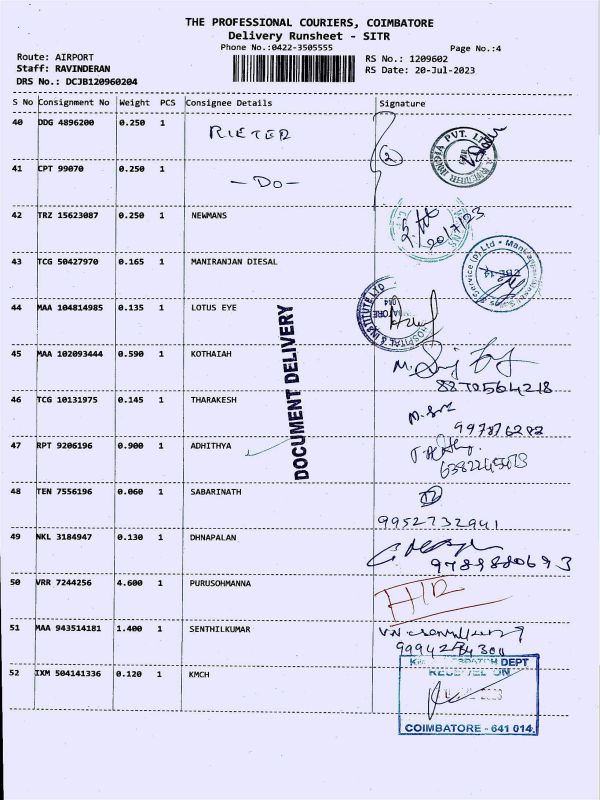 THE PROFESSIONAL COURIERS, COIMBATORE
Delivery Runsheet - SITR
Phone No.:0422-3505555 Page No.:4
Route: AIRPORT RS No.: 1209602
Staff: RAVINDERAN RS Date: 20-Jul-2023
DRS No.: DCJB120960204
S No Consignment No Weight PCS Consignee Details Signature
40 DDG 4896200 0.250 1 RIETER 2
41 CPT 99070 0.250 1 - DO -
42 TRZ 15623087 0.250 1 NEWMANS 20/7/23
43 TCG 50427970 0.165 1 MANIRANJAN DIESAL
44 MAA 104814985 0.135 1 LOTUS EYE
45 MAA 102093444 0.590 1 KOTHAIAH
8870564218
46 TCG 10131975 0.145 1 THARAKESH
47 RPT 9206196 0.900 1 ADHITHYA
48 TEN 7556196 0.060 1 SABARINATH
9952732941
49 NKL 3184947 0.130 1 DHNAPALAN
9789880693
50 VRR 7244256 4.600 1 PURUSOHMANNA
51 MAA 943514181 1.400 1 SENTHILKUMAR
52 IXM 504141336 0.120 1 KMCH
DEPT
RECEIVED ON
COIMBATORE - 641 014.
DOCUMENT DELIVERY